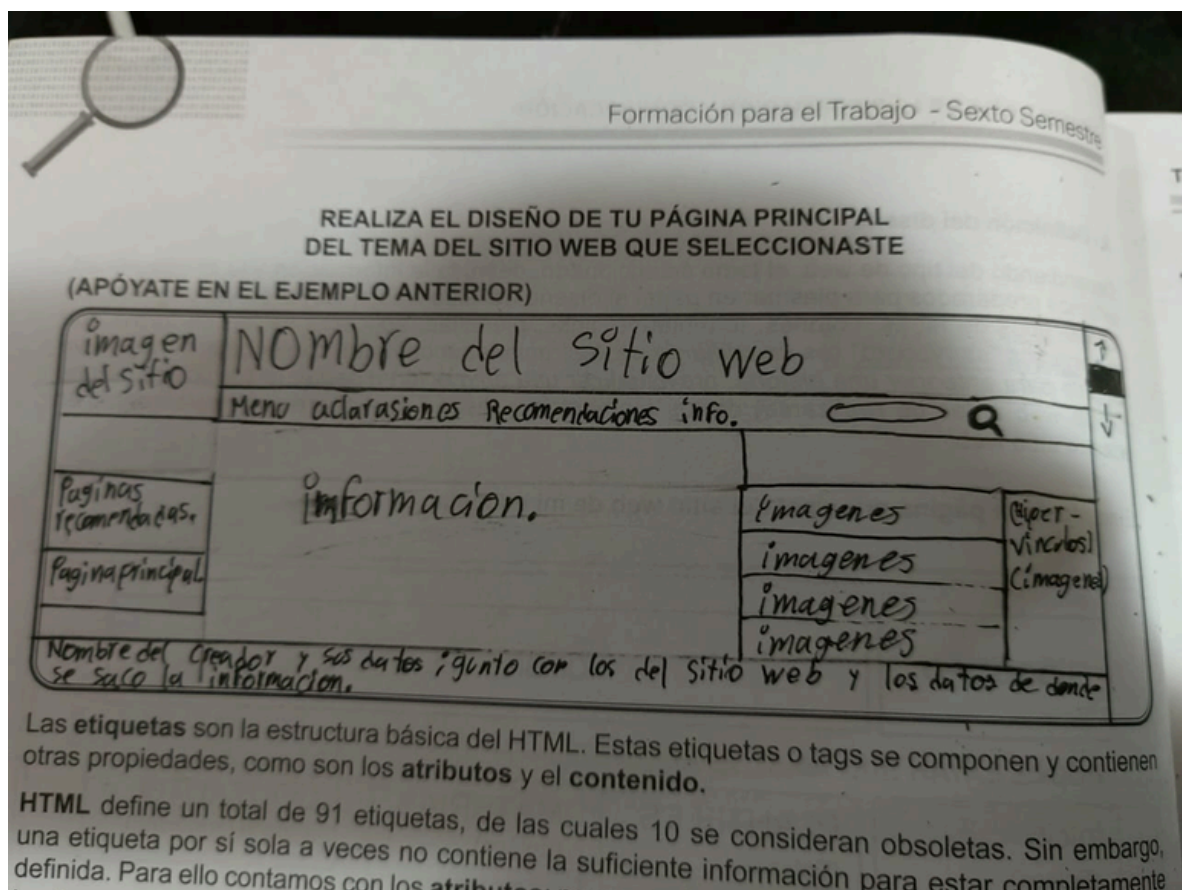 Formación para el Trabajo - Sexto Semestre
REALIZA EL DISEÑO DE TU PÁGINA PRINCIPAL
DEL TEMA DEL SITIO WEB QUE SELECCIONASTE
(APÓYATE EN EL EJEMPLO ANTERIOR)
imagen
del sitio
NOmbre del sitio web
Menu aclarasiones Recomendaciones info.
Paginas
recomendadas.
Pagina principal
informacion.
imagenes
imagenes
imagenes
imagenes
(Hiper-
vinculos)
(imagenes)
Nombre del creador y sus datos junto con los del sitio web y los datos de donde
se saco la informacion.
Las etiquetas son la estructura básica del HTML. Estas etiquetas o tags se componen y contienen
otras propiedades, como son los atributos y el contenido.
HTML define un total de 91 etiquetas, de las cuales 10 se consideran obsoletas. Sin embargo,
una etiqueta por sí sola a veces no contiene la suficiente información para estar completamente
definida. Para ello contamos con los